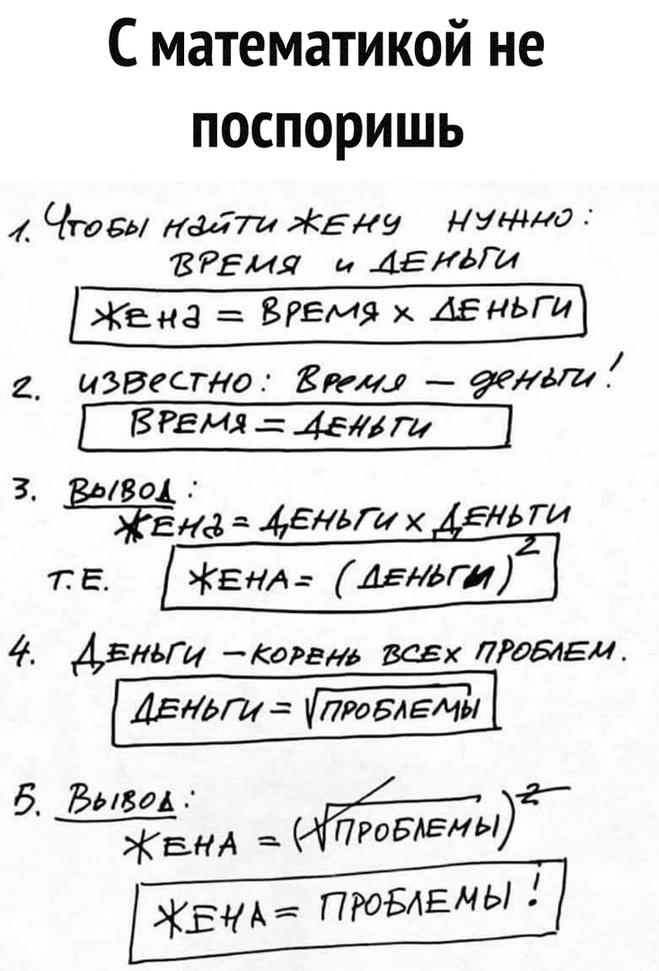 С математикой не
поспоришь
1. Чтобы найти жену нужно:
время и деньги
жена = время x деньги
2. известно: Время – деньги!
время = деньги
3. Вывод:
жена = деньги x деньги
т.е. жена = (деньги)²
4. Деньги – корень всех проблем.
деньги = √проблемы
5. Вывод:
жена = (√проблемы)²
жена = проблемы!